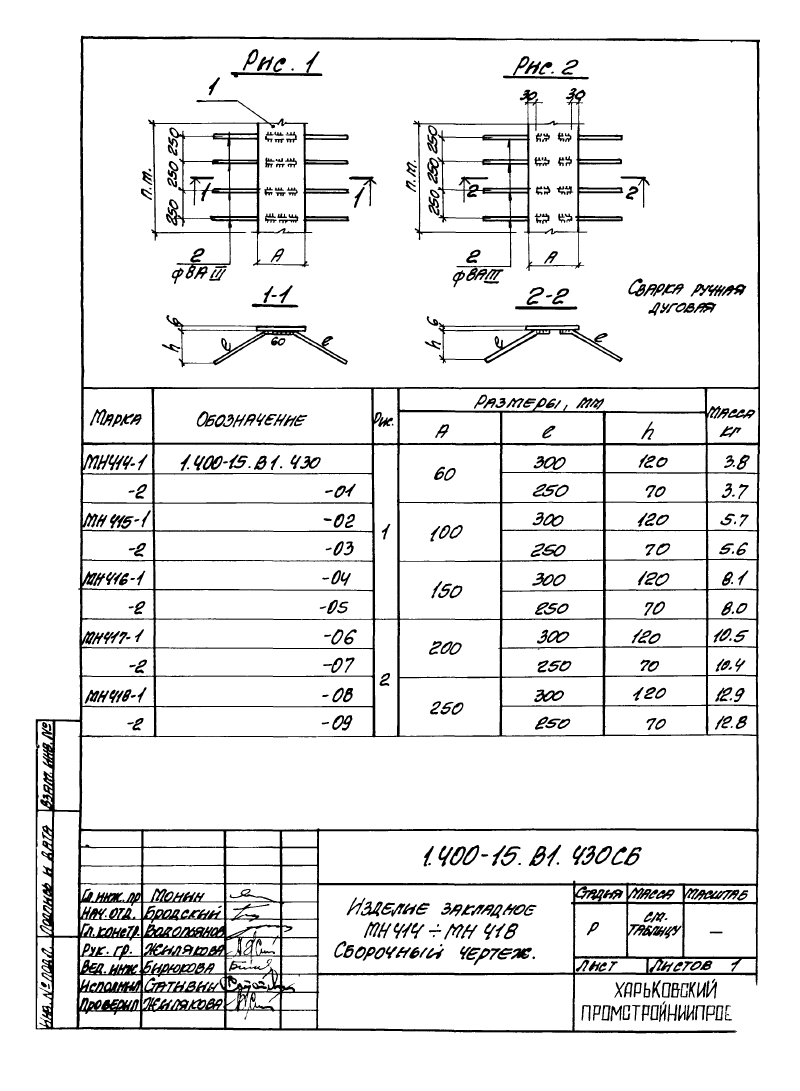 Рис. 1
Рис. 2
1
30 30
п.м. 250 250 250
п.м. 250 250 250
1 1
2 2
2
ф8АIII
А
2
ф8АIII
А
1-1
2-2
Сварка ручная
дуговая
6 h ℓ 60 ℓ
6 h ℓ ℓ
Марка Обозначение Рис. Размеры, мм Масса кг
А ℓ h
МН414-1 1.400-15.В1.430 1 60 300 120 3.8
-2 -01 250 70 3.7
МН415-1 -02 100 300 120 5.7
-2 -03 250 70 5.6
МН416-1 -04 150 300 120 8.1
-2 -05 250 70 8.0
МН417-1 -06 2 200 300 120 10.5
-2 -07 250 70 10.4
МН418-1 -08 250 300 120 12.9
-2 -09 250 70 12.8
Взам. инв. №
Подпись и дата
Инв. № подл.
1.400-15.В1.430СБ
Гл. инж. пр Монин
Нач. отд. Бродский
Гл. констр. Водопьянов
Рук. гр. Жилякова
Вед. инж. Бирюкова
Исполнил Сатывин
Проверил Жилякова
Изделие закладное
МН414÷МН 418
Сборочный чертеж.
Стадия Масса Масштаб
Р см. таблицу —
Лист Листов 1
ХАРЬКОВСКИЙ
ПРОМСТРОЙНИИПРОЕ